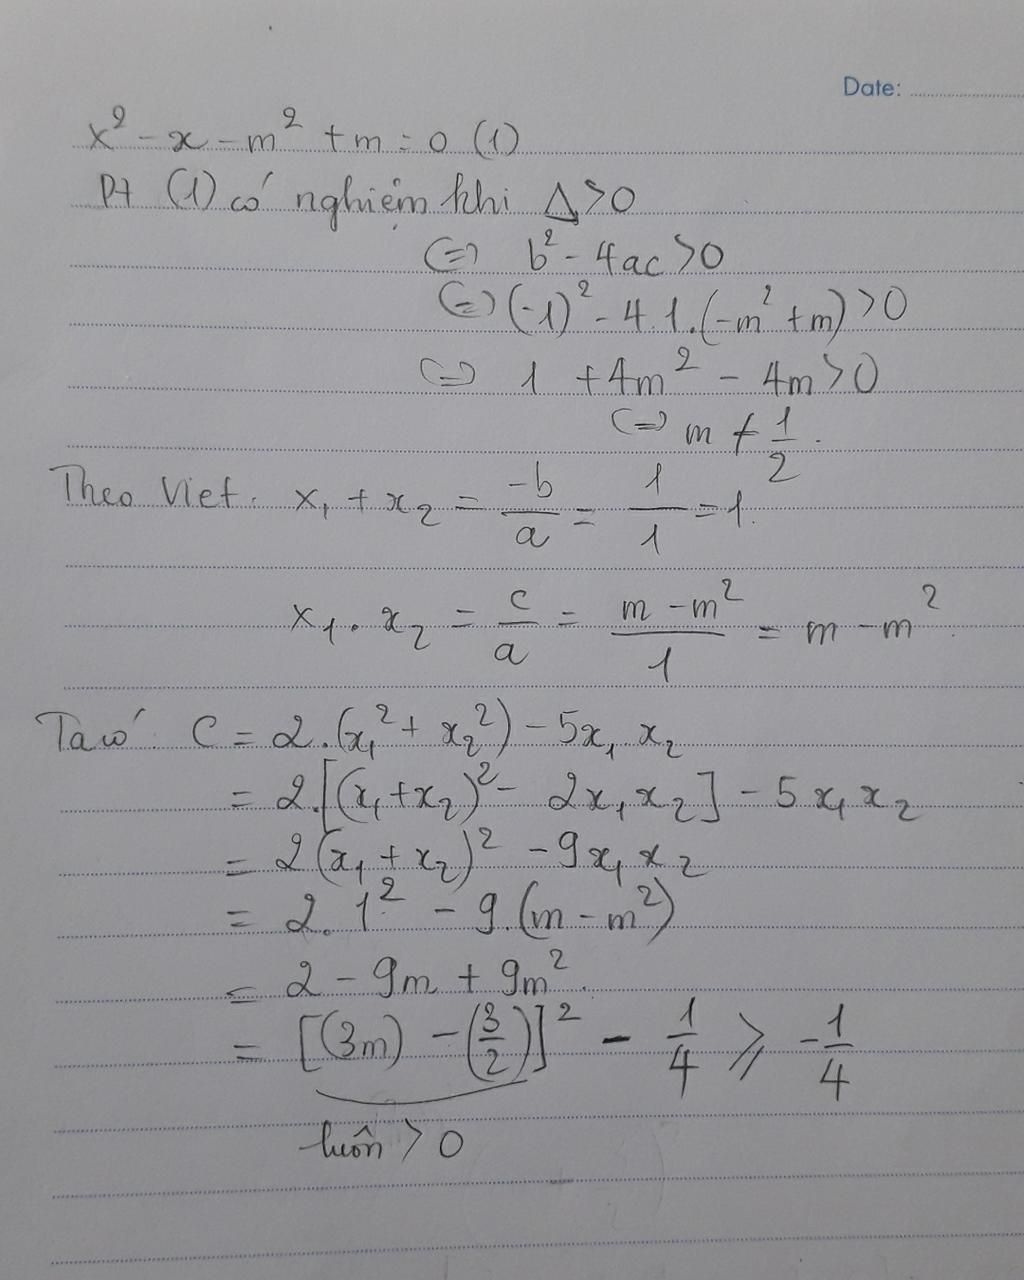 Date:
x² - x - m² + m = 0 (1)
Pt (1) có nghiệm khi Δ > 0
(=) b² - 4ac > 0
(=) (-1)² - 4.1.(-m² + m) > 0
(=) 1 + 4m² - 4m > 0
(=) m ≠ 1/2.
Theo Viet. x₁ + x₂ = -b/a = 1/1 = 1.
x₁ . x₂ = c/a = (m - m²)/1 = m - m².
Ta có C = 2.(x₁² + x₂²) - 5x₁ x₂
= 2.[(x₁ + x₂)² - 2x₁ x₂] - 5x₁ x₂
= 2(x₁ + x₂)² - 9x₁ x₂
= 2. 1² - 9.(m - m²)
= 2 - 9m + 9m².
= [(3m) - (3/2)]² - 1/4 ⩾ -1/4
luôn > 0